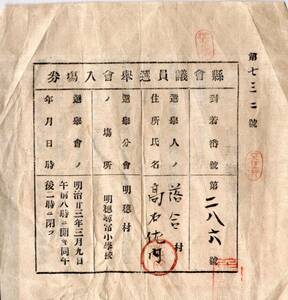 第七三二號
縣會議員選擧會入場券
到着番號
第二八六號
選擧人ノ
住所氏名
落合村
高石佐
選擧分會
ノ場所
明穂村
明穂尋常小學校
選擧會ノ
年月日時
明治廿三年三月九日
午前八時ニ開キ同午
後二時ニ閉ツ